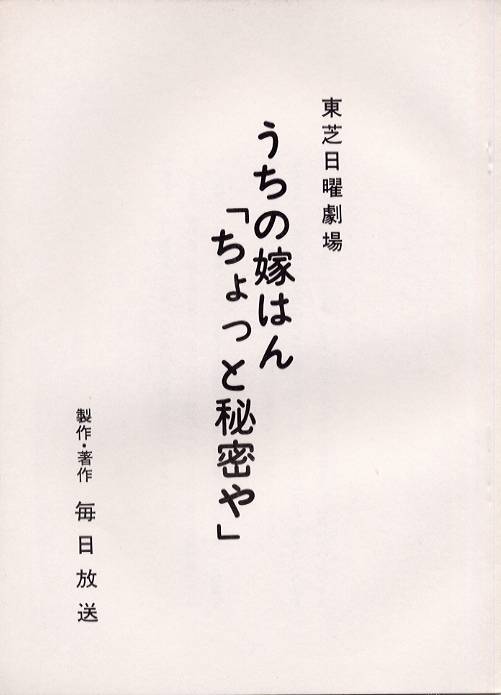 東芝日曜劇場
うちの嫁はん
「ちょっと秘密や」
製作・著作 毎日放送